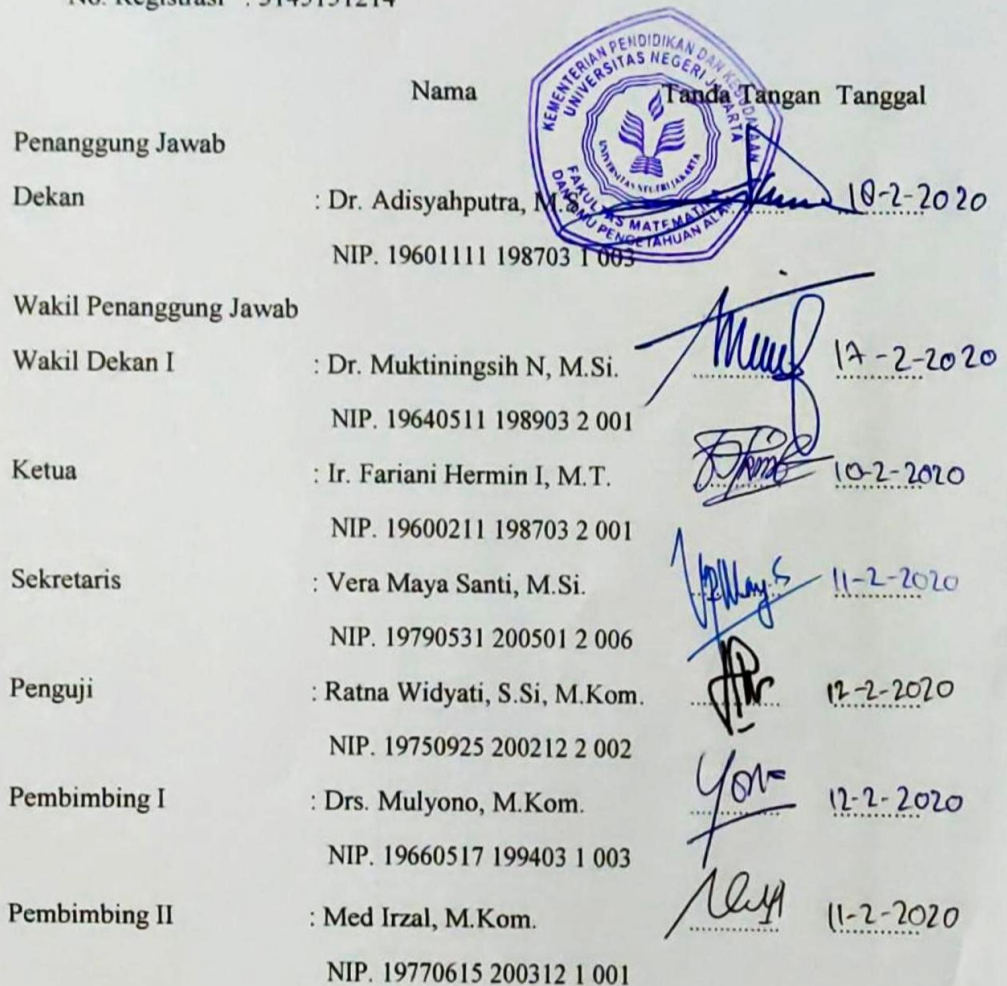 No. Registrasi : 3145151214
Nama Tanda Tangan Tanggal
KEMENTERIAN PENDIDIKAN DAN KEBUDAYAAN
UNIVERSITAS NEGERI JAKARTA
UNIVERSITAS NEGERI JAKARTA
FAKULTAS MATEMATIKA
DAN ILMU PENGETAHUAN ALAM
Penanggung Jawab
Dekan : Dr. Adisyahputra, M.S 18-2-2020
NIP. 19601111 198703 1 003
Wakil Penanggung Jawab
Wakil Dekan I : Dr. Muktiningsih N, M.Si. 17-2-2020
NIP. 19640511 198903 2 001
Ketua : Ir. Fariani Hermin I, M.T. 10-2-2020
NIP. 19600211 198703 2 001
Sekretaris : Vera Maya Santi, M.Si. 11-2-2020
NIP. 19790531 200501 2 006
Penguji : Ratna Widyati, S.Si, M.Kom. 12-2-2020
NIP. 19750925 200212 2 002
Pembimbing I : Drs. Mulyono, M.Kom. 12-2-2020
NIP. 19660517 199403 1 003
Pembimbing II : Med Irzal, M.Kom. 11-2-2020
NIP. 19770615 200312 1 001